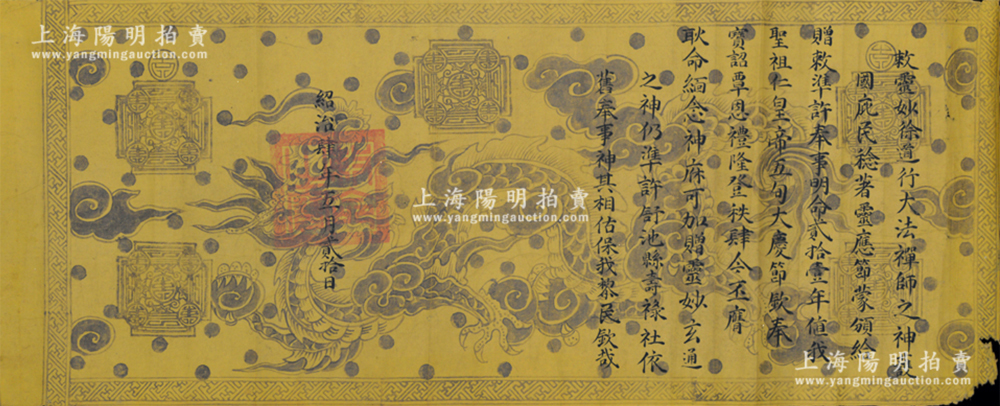 敕靈妙徐道行大法禪師之神
國庇民稔著靈應節蒙頒給
贈敕準許奉事明命貳拾壹年値我
聖祖仁皇帝五旬大慶節欽奉
寳詔覃恩禮隆登秩肆今丕膺
耿命緬念神庥可加贈靈妙玄通
之神仍準許計池縣壽祿社依
舊奉事神其相佑保我黎民欽哉
紹治肆年五月貳拾日
上海陽明拍賣
www.yangmingauction.com
上海陽明拍賣
www.yangmingauction.com
上海陽明拍賣
www.yangmingauction.com